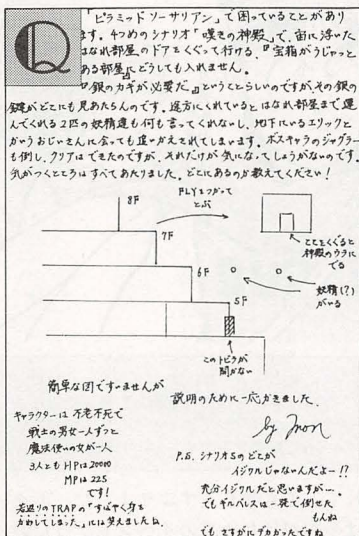 Q
「ピラミッドソーサリアン」で困っていることがあり
ます。4つめのシナリオ「嘆きの神殿」で、宙に浮いた
はなれ部屋のドアをくぐって行ける、『宝箱がうじゃっと
ある部屋』にどうしても入れません。
『銀のカギが必要だ』ということらしいのですが、その銀の
鍵がどこにも見あたらんのです。途方にくれているとはなれ部屋まで運
んでくれる2匹の妖精達も何も言ってくれないし、地下にいるエリックと
かいうおじいさんに会っても追いかえされてしまいます。ボスキャラのジャグラー
も倒し、クリアはできたのですが、それだけが気になってしょうがないのです。
気がつくところはすべてあたりました。どこにあるのか教えてください!
8F
FLYをつかって
とぶ
7F
ここをくぐると
神殿のウラに
でる
6F
妖精(?)
がいる
5F
このトビラが
開かない
簡単な図ですいませんが
説明のために一応かきました。
キャラクターは不老不死で
戦士の男女一人ずつと
魔法使いの女が一人
3人ともHPは20000
MPは225
です!
若返りのTRAPの「すばやく身を
かわしてしまった」には笑えましたね。
by
P.S. シナリオ5のどこが
イジワルじゃないんだよー!?
充分イジワルだと思いますが…。
でもギルバレスは一発で倒せた
もんね
でもさすがにデカかったですね